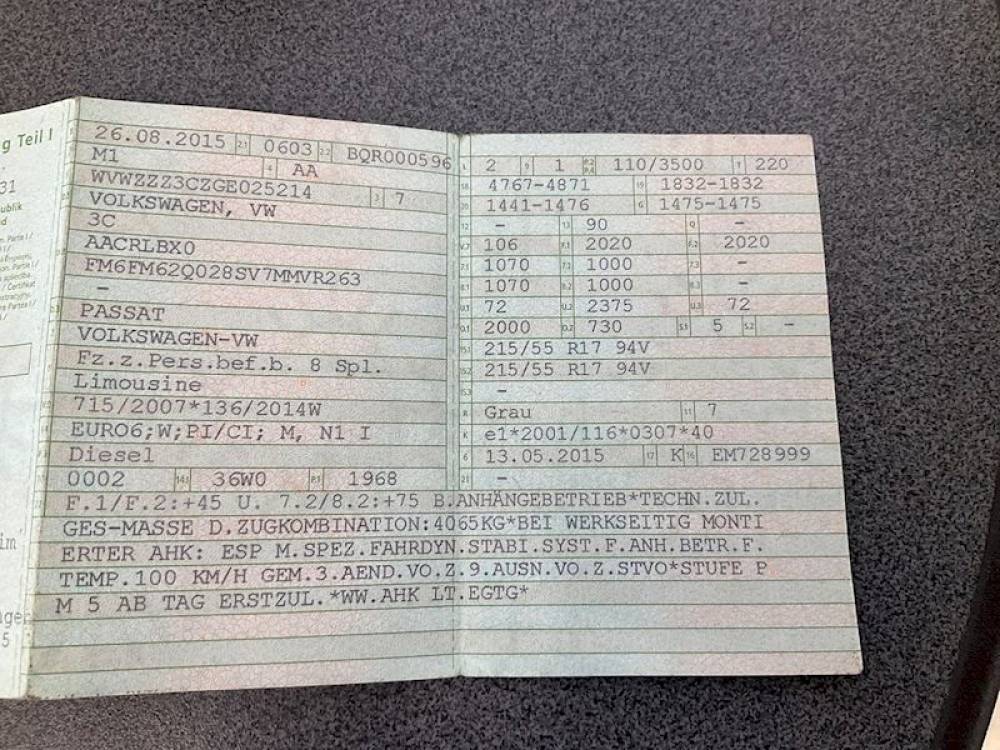 g Teil I
31
publik
d
im
5
26.08.2015 2.1 0603 2.2 BQR000596
M1 4 AA
WVWZZZ3CZGE025214 3 7
VOLKSWAGEN, VW
3C
AACRLBX0
FM6FM62Q028SV7MMVR263
–
PASSAT
VOLKSWAGEN-VW
Fz.z.Pers.bef.b. 8 Spl.
Limousine
715/2007*136/2014W
EURO6;W;PI/CI; M, N1 I
Diesel
0002 14.1 36W0 P.1 1968
L 2 9 1 P.2 P.4 110/3500 T 220
18 4767-4871 19 1832-1832
20 1441-1476 G 1475-1475
12 – 13 90 Q –
V.7 106 F.1 2020 F.2 2020
7.1 1070 7.2 1000 7.3 –
8.1 1070 8.2 1000 8.3 –
U.1 72 U.2 2375 U.3 72
O.1 2000 O.2 730 S.1 5 S.2 –
15.1 215/55 R17 94V
15.2 215/55 R17 94V
15.3 –
R Grau 11 7
K e1*2001/116*0307*40
6 13.05.2015 17 K 16 EM728999
21 –
F.1/F.2:+45 U. 7.2/8.2:+75 B.ANHÄNGEBETRIEB*TECHN.ZUL.
GES-MASSE D.ZUGKOMBINATION:4065KG*BEI WERKSEITIG MONTI
ERTER AHK: ESP M.SPEZ.FAHRDYN.STABI.SYST.F.ANH.BETR.F.
TEMP.100 KM/H GEM.3.AEND.VO.Z.9.AUSN.VO.Z.STVO*STUFE P
M 5 AB TAG ERSTZUL.*WW.AHK LT.EGTG*